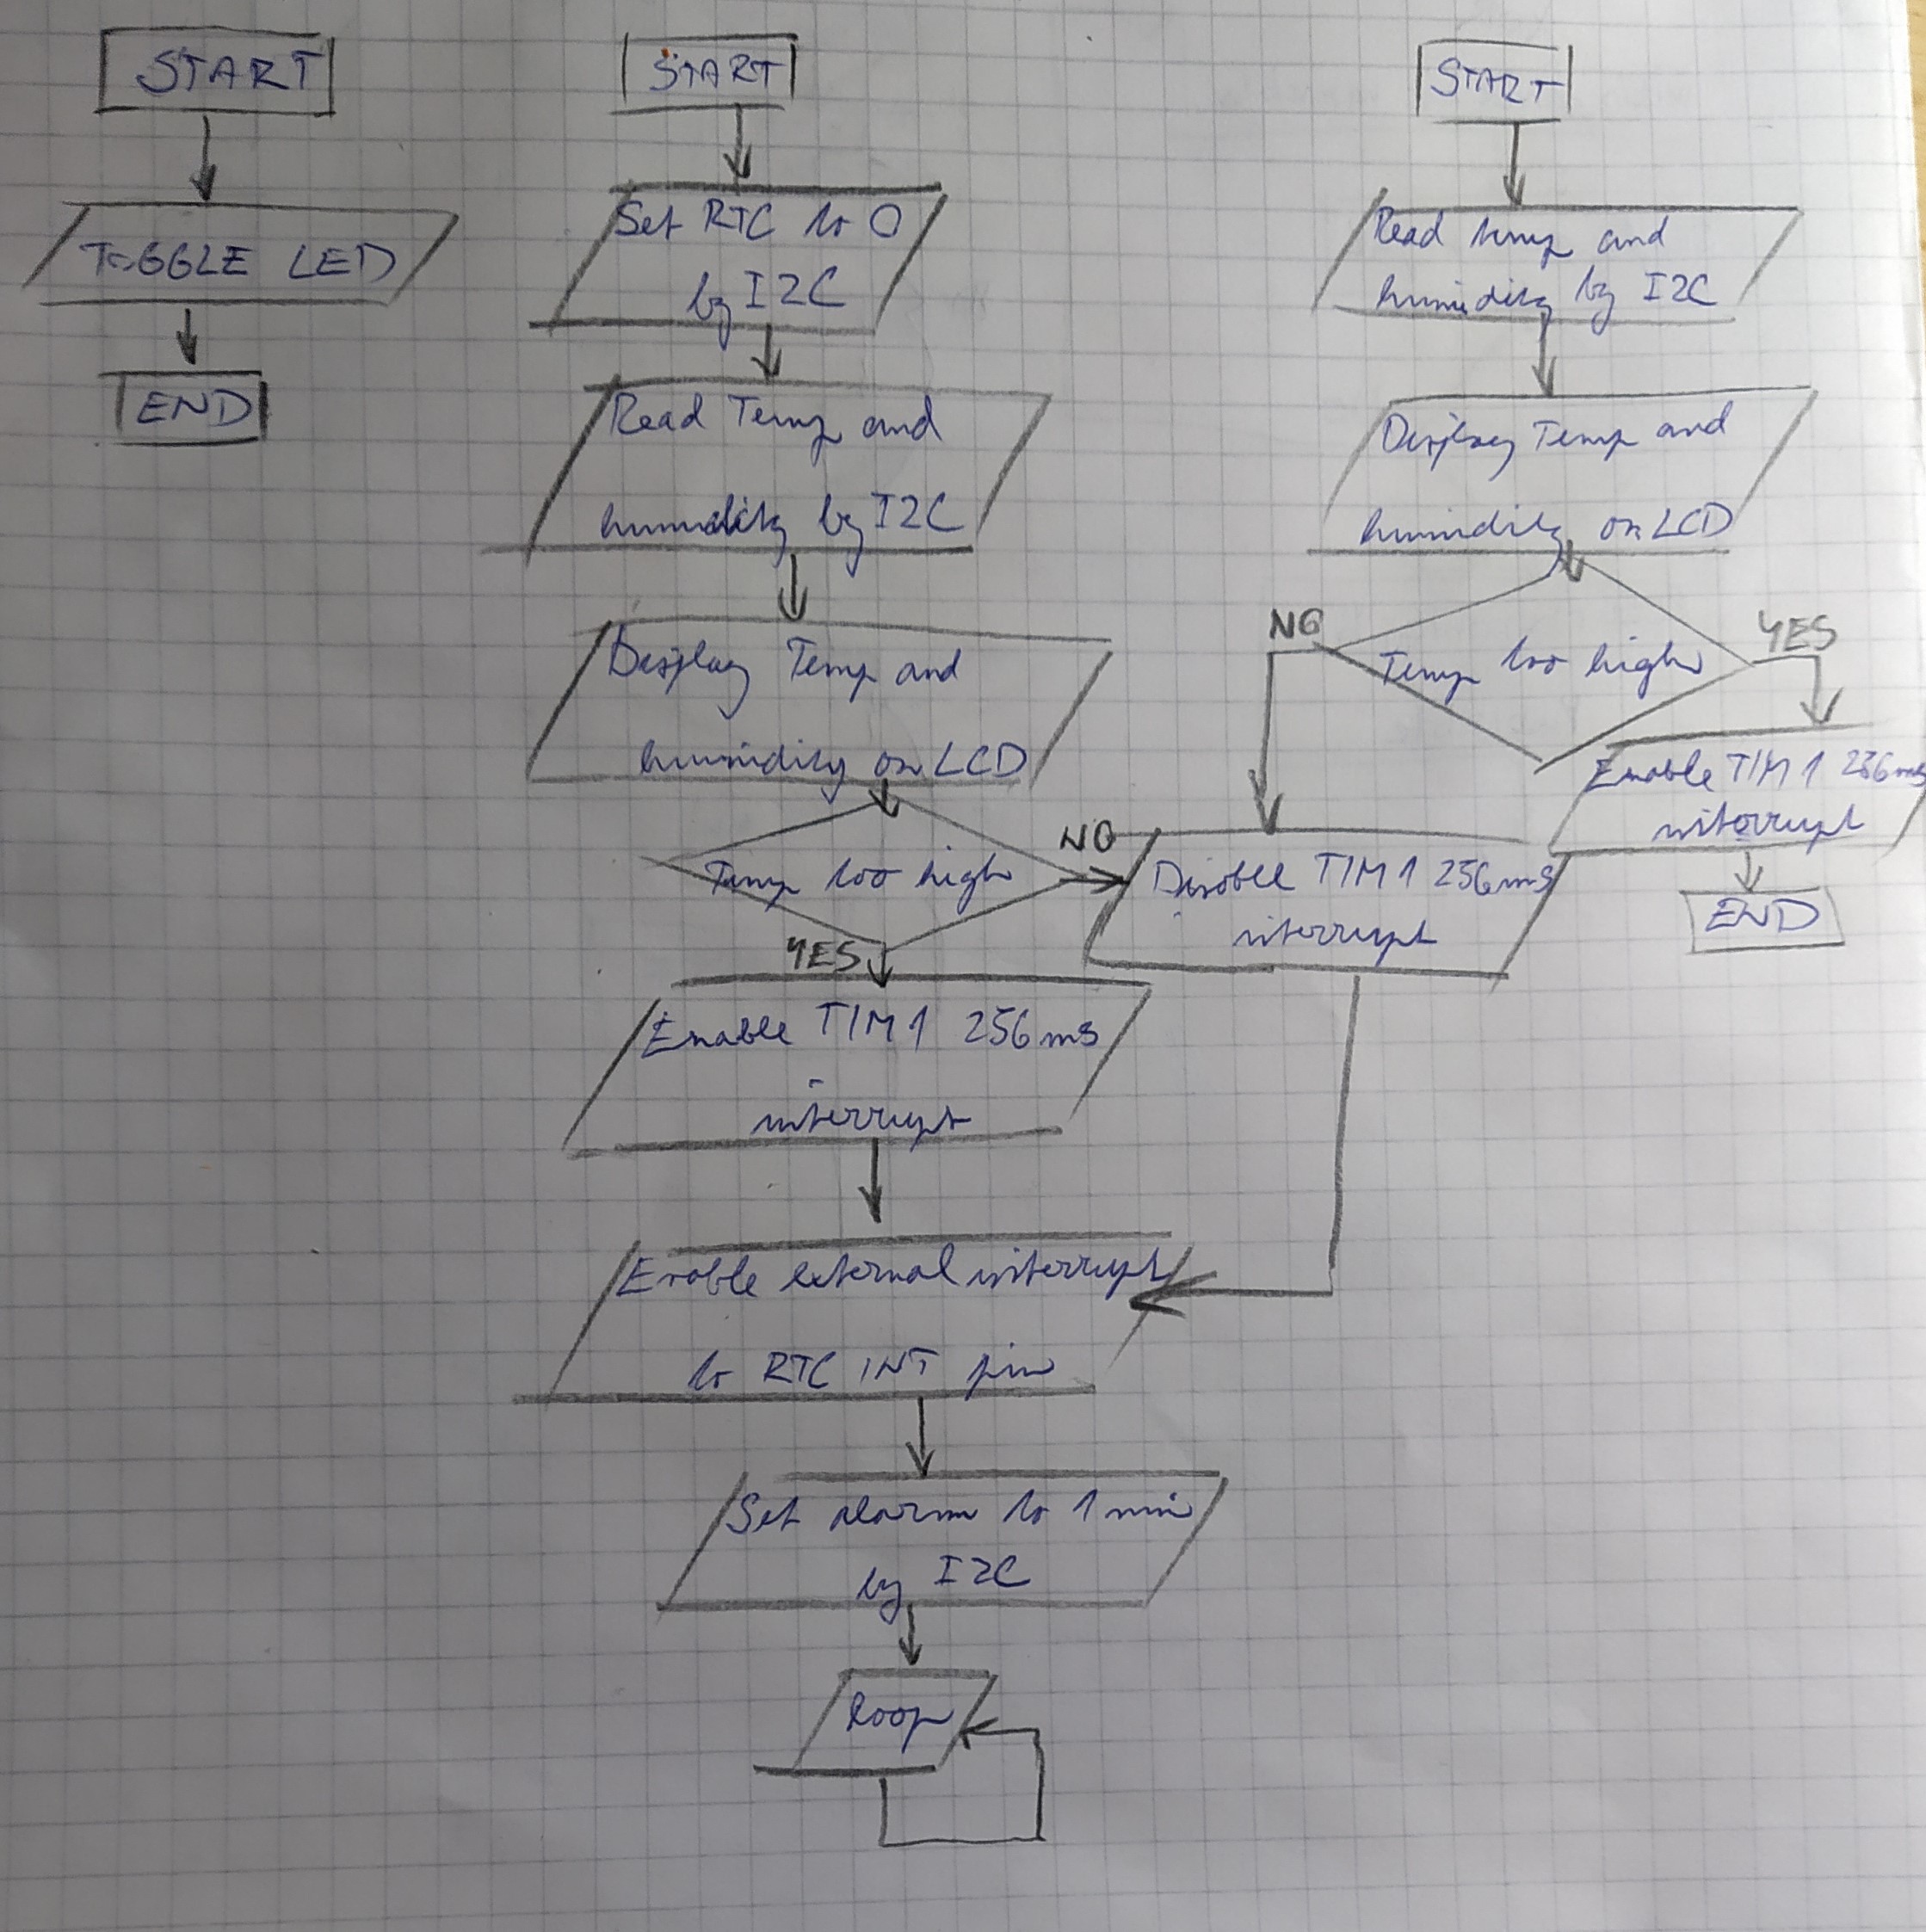 START
TOGGLE LED
END
START
Set RTC to 0
by I2C
Read Temp and
humidity by I2C
Display Temp and
humidity on LCD
Temp too high
NO
YES
Enable TIM1 256ms
interrupt
Enable external interrupt
to RTC INT pin
Set alarm to 1 min
by I2C
loop
START
Read temp and
humidity by I2C
Display Temp and
humidity on LCD
NO
YES
Temp too high
Disable TIM1 256ms
interrupt
Enable TIM1 256ms
interrupt
END